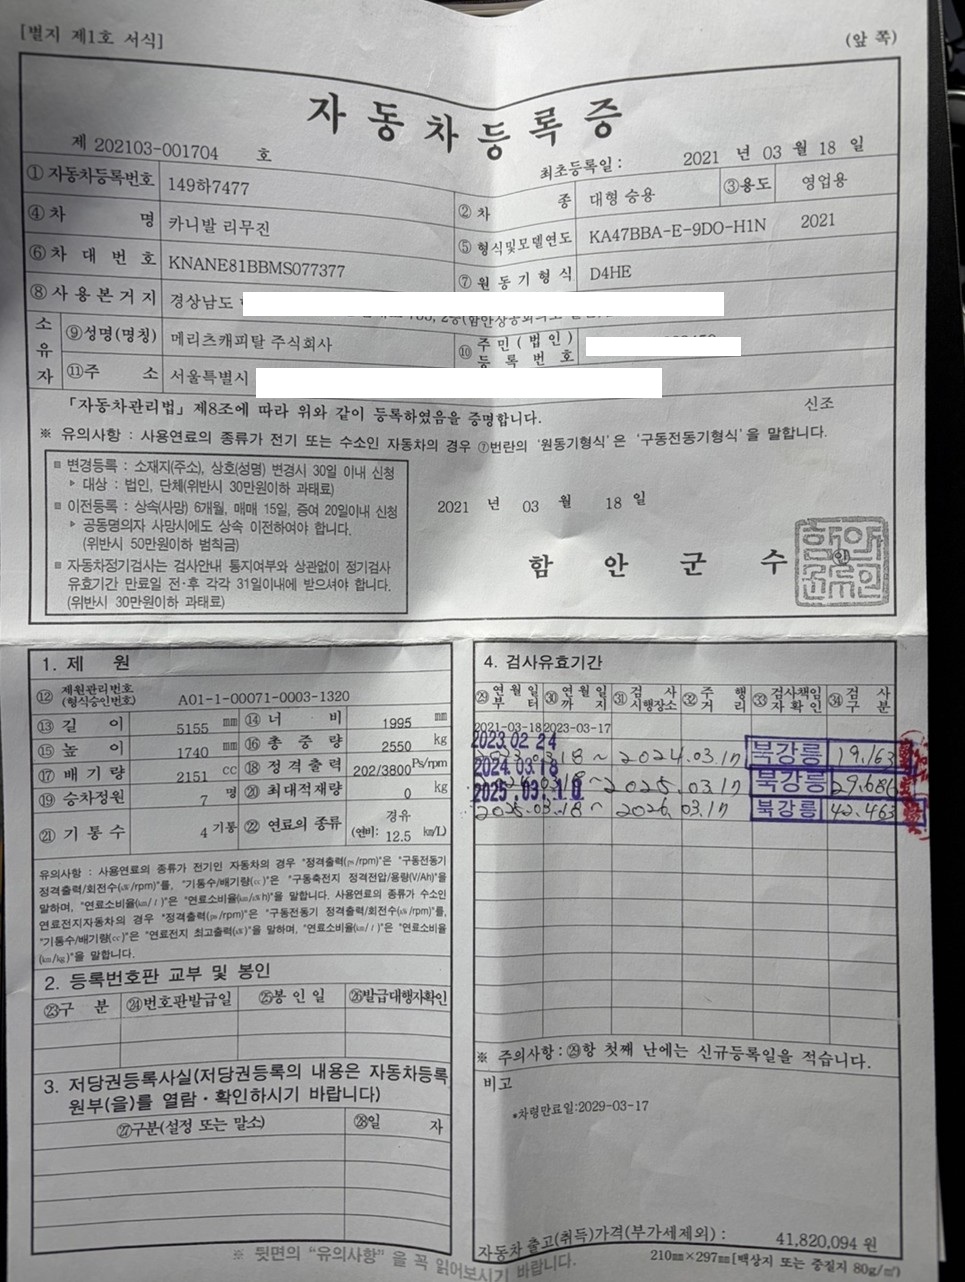 [별지 제1호 서식]
(앞 쪽)
자동차등록증
제 202103-001704 호
최초등록일 : 2021 년 03 월 18 일
① 자동차등록번호 149하7477 ② 차 종 대형 승용 ③용도 영업용
④ 차 명 카니발 리무진 ⑤ 형식및모델연도 KA47BBA-E-9DO-H1N 2021
⑥ 차 대 번 호 KNANE81BBMS077377 ⑦ 원 동 기 형 식 D4HE
⑧ 사 용 본 거 지 경상남도
소유자 ⑨성명(명칭) 메리츠캐피탈 주식회사 ⑩ 주 민 ( 법 인 ) 등 록 번 호
⑪주 소 서울특별시
「자동차관리법」 제8조에 따라 위와 같이 등록하였음을 증명합니다. 신조
※ 유의사항 : 사용연료의 종류가 전기 또는 수소인 자동차의 경우 ⑦번란의 '원동기형식'은 '구동전동기형식'을 말합니다.
▣ 변경등록 : 소재지(주소), 상호(성명) 변경시 30일 이내 신청
▸ 대상 : 법인, 단체(위반시 30만원이하 과태료)
▣ 이전등록 : 상속(사망) 6개월, 매매 15일, 증여 20일이내 신청
▸ 공동명의자 사망시에도 상속 이전하여야 합니다.
(위반시 50만원이하 범칙금)
▣ 자동차정기검사는 검사안내 통지여부와 상관없이 정기검사
유효기간 만료일 전·후 각각 31일이내에 받으셔야 합니다.
(위반시 30만원이하 과태료)
2021 년 03 월 18 일
함 안 군 수
1. 제 원
⑫ 제원관리번호 (형식승인번호) A01-1-00071-0003-1320
⑬ 길 이 5155 ㎜ ⑭ 너 비 1995 ㎜
⑮ 높 이 1740 ㎜ ⑯ 총 중 량 2550 kg
⑰ 배 기 량 2151 cc ⑱ 정 격 출 력 202/3800 Ps/rpm
⑲ 승차정원 7 명 ⑳ 최대적재량 0 kg
㉑ 기 통 수 4 기통 ㉒ 연료의 종류 경유 (연비: 12.5 ㎞/L)
유의사항 : 사용연료의 종류가 전기인 자동차의 경우 "정격출력(㎰/rpm)"은 "구동전동기
정격출력/회전수(㎾/rpm)"를, "기통수/배기량(㏄)"은 "구동축전지 정격전압/용량(V/Ah)"을
말하며, "연료소비율(㎞/ℓ)"은 "연료소비율(㎞/㎾h)"을 말합니다. 사용연료의 종류가 수소인
연료전지자동차의 경우 "정격출력(㎰/rpm)"은 "구동전동기 정격출력/회전수(㎾/rpm)"를,
"기통수/배기량(㏄)"은 "연료전지 최고출력(㎾)"을 말하며, "연료소비율(㎞/ℓ)"은 "연료소비율
(㎞/㎏)"을 말합니다.
2. 등록번호판 교부 및 봉인
㉓구 분 ㉔번호판발급일 ㉕봉 인 일 ㉖발급대행자확인
3. 저당권등록사실(저당권등록의 내용은 자동차등록
원부(을)를 열람 · 확인하시기 바랍니다)
㉗구분(설정 또는 말소) ㉘일 자
4. 검사유효기간
㉙ 연 월 일 부 터 ㉚ 연 월 일 까 지 ㉛ 검 사 시행장소 ㉜ 주 행 거 리 ㉝ 검사책임 자확인 ㉞ 검 사 구 분
2021-03-18 2023-03-17
2023.02.24
03.18 ~ 2024.03.17 북강릉 19,163
2024.03.18
~ 2025.03.17 북강릉 29,686
2025.03.18
2025.03.18 ~ 2026.03.17 북강릉 42,463
※ 주의사항 : ㉙항 첫째 난에는 신규등록일을 적습니다.
비고
*차령만료일:2029-03-17
자동차 출고(취득)가격(부가세제외) : 41,820,094 원
※ 뒷면의 "유의사항"을 꼭 읽어보시기 바랍니다.
210㎜×297㎜[백상지 또는 중질지 80g/㎡]